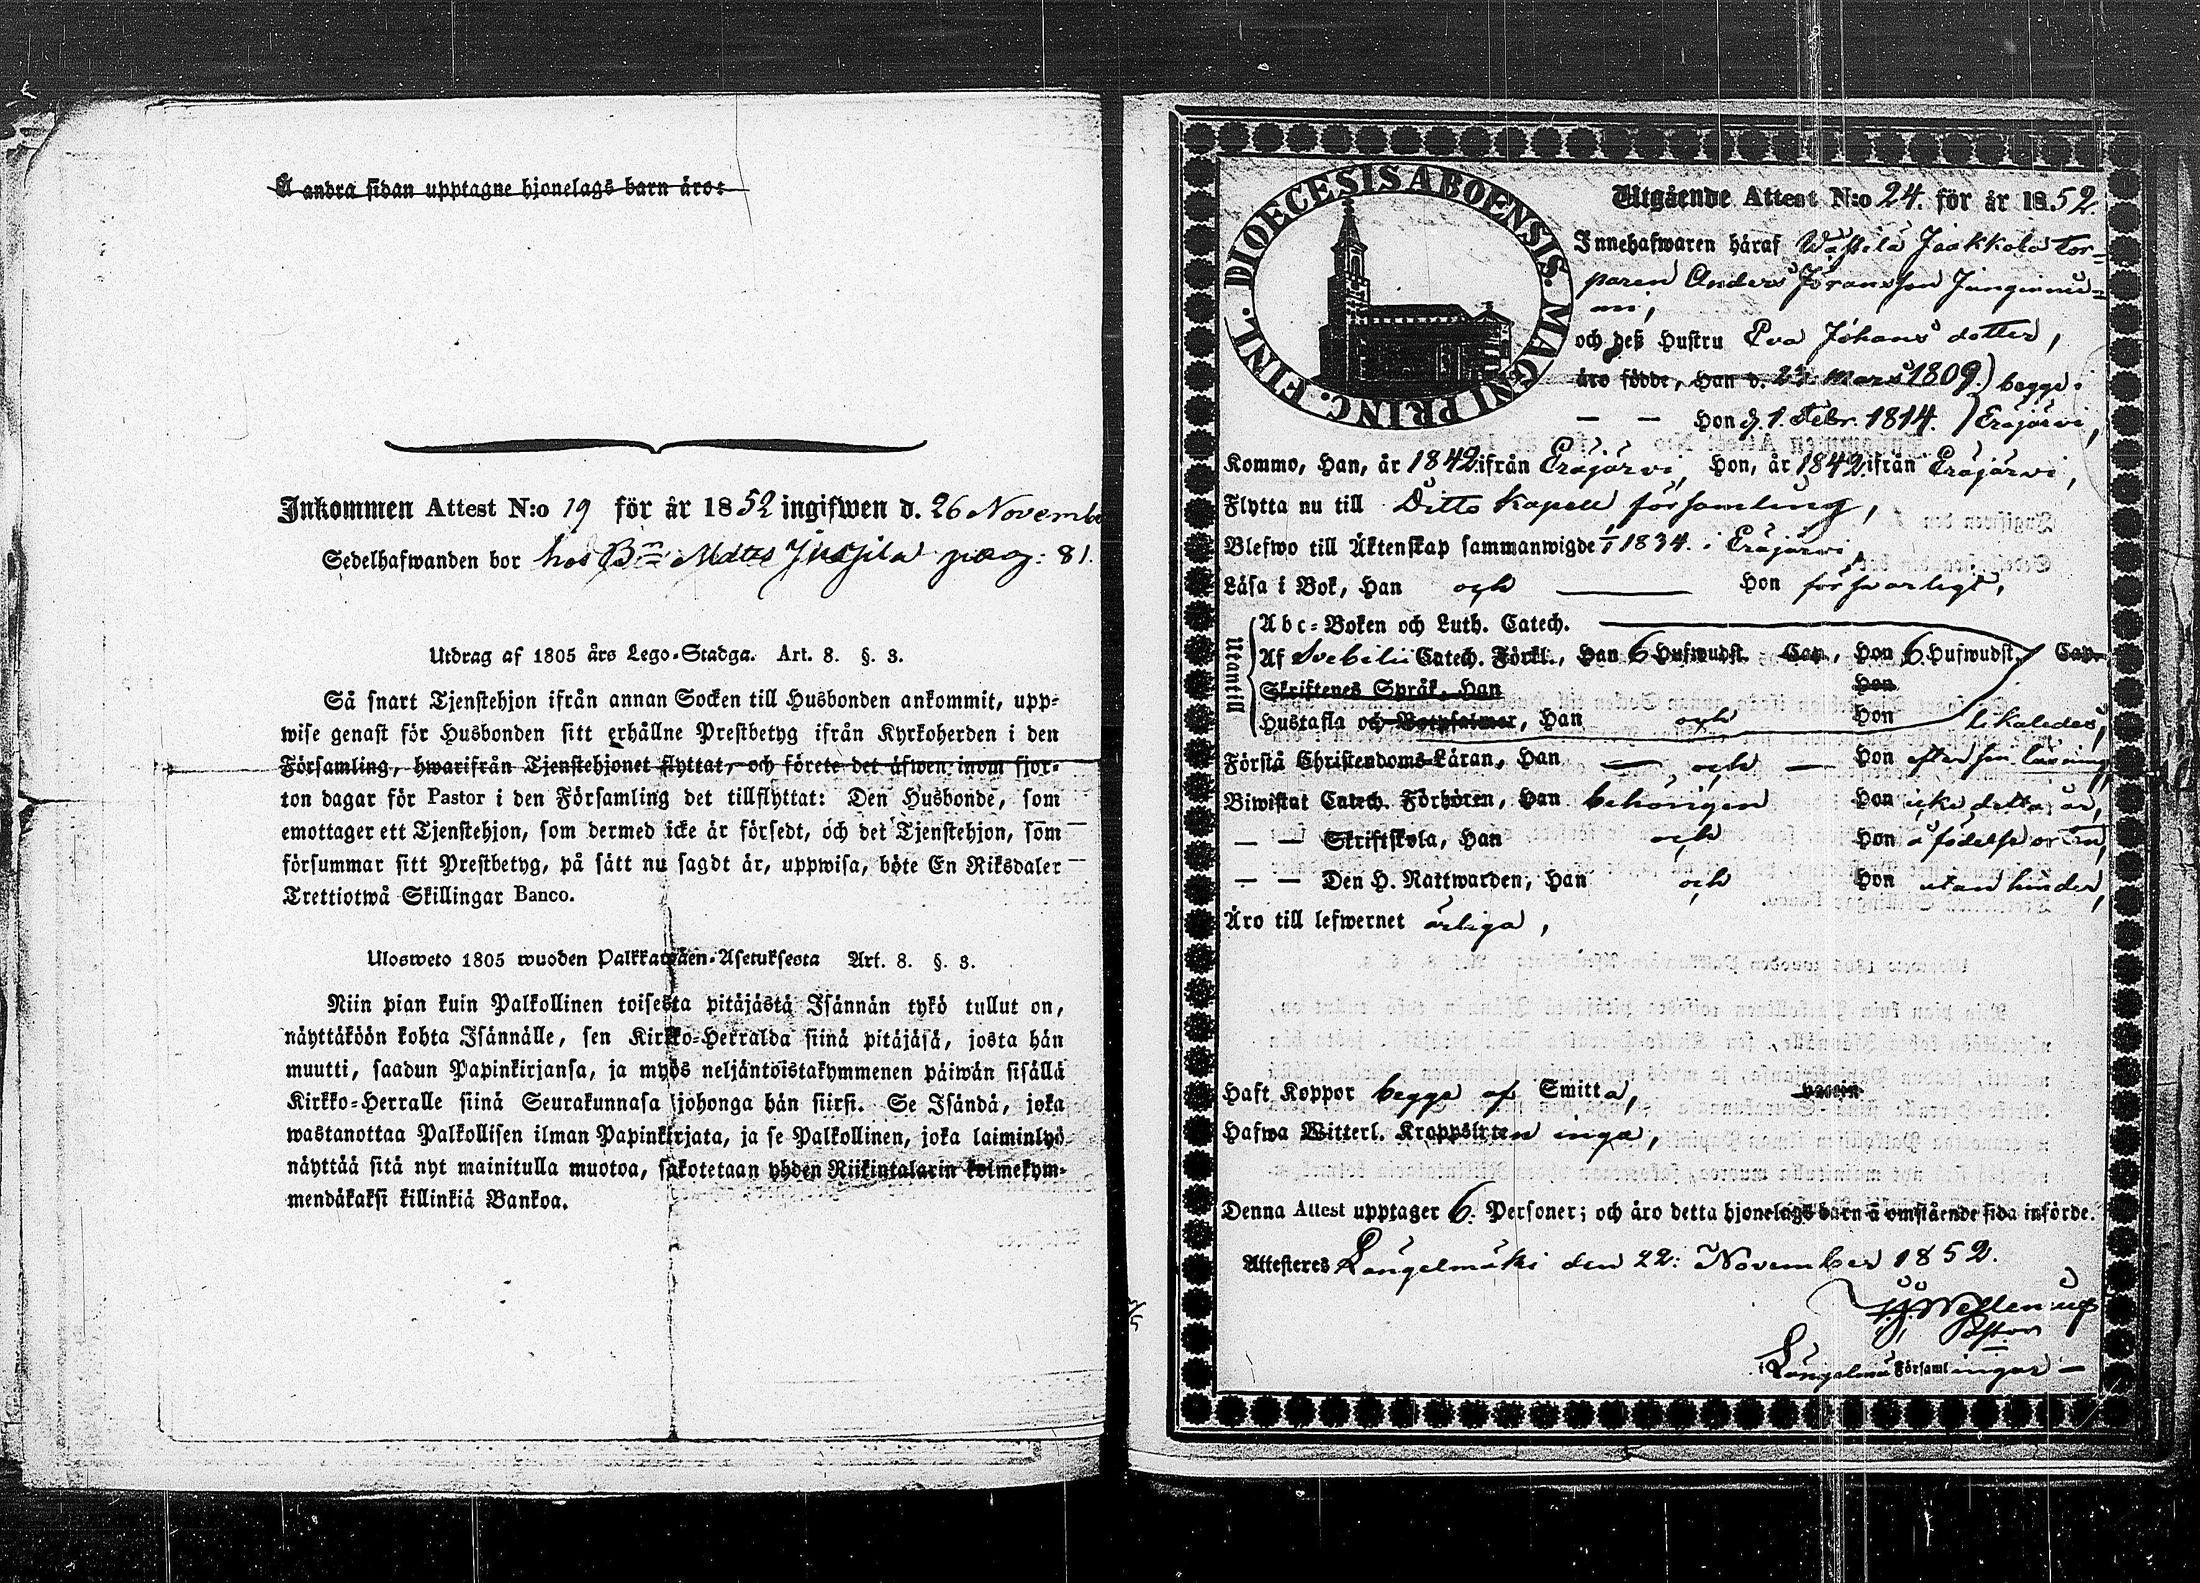 Å andra sidan upptagne hjonelags barn äro:
Inkommen Attest N:o 19 för år 1852 ingifwen d. 26 Novembe
Sedelhafwanden bor hos Bn Matts Jussila pag: 81.
Utdrag af 1805 års Lego-Stadga. Art. 8. §. 3.
Så snart Tjenstehjon ifrån annan Socken till Husbonden ankommit, upp-
wise genast för Husbonden sitt erhållne Prestbetyg ifrån Kyrkoherden i den
Församling, hwarifrån Tjenstehjonet flyttat, och förete det äfwen inom fjor-
ton dagar för Pastor i den Församling det tillflyttat: Den Husbonde, som
emottager ett Tjenstehjon, som dermed icke är försedt, och det Tjenstehjon, som
försummar sitt Prestbetyg, på sätt nu sagdt är, uppwisa, böte En Riksdaler
Trettiotwå Skillingar Banco.
Ulosweto 1805 wuoden Palkkawäen-Asetuksesta Art. 8. §. 3.
Niin pian kuin Palkollinen toisesta pitäjästä Isännän tykö tullut on,
näyttäköön kohta Isännälle, sen Kirkko-Herralda siinä pitäjäsä, josta hän
muutti, saadun Papinkirjansa, ja myös neljäntoistakymmenen päiwän sisällä
Kirkko-Herralle siinä Seurakunnasa johonga hän siirsi. Se Isändä, joka
wastanottaa Palkollisen ilman Papinkirjata, ja se Palkollinen, joka laiminlyö
näyttää sitä nyt mainitulla muotoa, sakotetaan yhden Riikintalarin kolmekym-
mendäkaksi killinkiä Bankoa.
DIOECESIS ABOENSIS. MAGNI PRINC. FINL.
Utgående Attest N:o 24. för år 1852.
Innehafwaren häraf Wästilä Jaakkola Tor-
paren Anders Jöransson
och deß Hustru Eva Johans dotter,
äro födde, Han d. 23 Mars 1809. begge i
— — Hon d. 1. Febr. 1814. Eräjärvi,
Kommo, Han, år 1842 ifrån Eräjärvi, Hon, år 1842 ifrån Eräjärvi,
Flytta nu till Ditto Kapell församling,
Blefwo till Äktenskap sammanwigde 1834. i Eräjärvi,
Läsa i Bok, Han och — Hon försvarligt,
Utantill
Abc-Boken och Luth. Catech.
Af Svebilii Catech. Förkl., Han 6 Hufwudst. Cap., Hon 6. Hufwudst. Cap.
Skriftenes Språk, Han Hon
Hustafla och Botpsalmer, Han och Hon likaledes,
Förstå Christendoms-Läran, Han — och — Hon efter sin läsning,
Biwistat Catech. Förhören, Han behörigen Hon icke detta år,
— — Skriftskola, Han och Hon å födelse orten,
— — Den H. Nattwarden, Han och Hon utan hinder,
Äro till lefwernet ärliga,
Haft Koppor begge af Smitta,
Hafwa Witterl. Kroppslyten inga,
Denna Attest upptager 6. Personer; och äro detta hjonelags barn å omstående sida införde.
Attesteres Längelmäki den 22: November 1852.
Pastor
i Längelmä Församlingar —